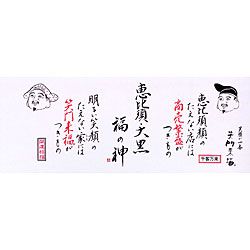 恵比須顔の
たえない店には
商売繁盛が
つきもの
恵比須・大黒
福の神
明るい笑顔の
たえない家には
笑門来福が
つきもの
千客万来